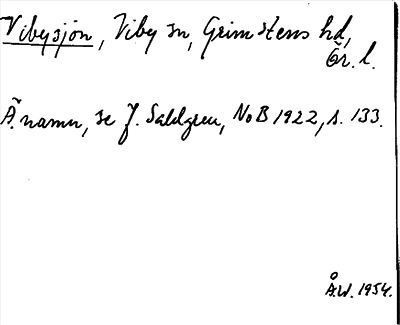 Vibysjön, Viby sn, Grimstens hd,
Ör. l.
Ä. namn, se J. Sahlgren, NoB 1922, s. 133.
Å.W. 1954.